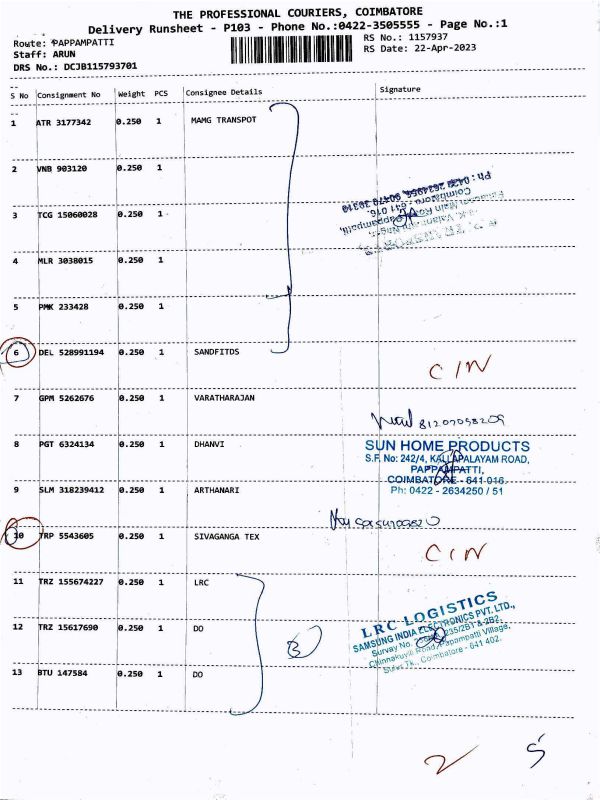 THE PROFESSIONAL COURIERS, COIMBATORE
Delivery Runsheet - P103 - Phone No.:0422-3505555 - Page No.:1
Route: PAPPAMPATTI
RS No.: 1157937
Staff: ARUN
RS Date: 22-Apr-2023
DRS No.: DCJB115793701
S No Consignment No Weight PCS Consignee Details Signature
1 ATR 3177342 0.250 1 MAMG TRANSPOT
2 VNB 903120 0.250 1
Ph : 0422
Coimbatore - 641 016.
3 TCG 15060028 0.250 1
4 MLR 3038015 0.250 1
5 PMK 233428 0.250 1
6 DEL 528991194 0.250 1 SANDFITDS
CIN
7 GPM 5262676 0.250 1 VARATHARAJAN
8 PGT 6324134 0.250 1 DHANVI
SUN HOME PRODUCTS
S.F. No: 242/4, KALLAPALAYAM ROAD,
PAPPAMPATTI,
COIMBATORE - 641 016.
Ph: 0422 - 2634250 / 51
9 SLM 318239412 0.250 1 ARTHANARI
10 TRP 5543605 0.250 1 SIVAGANGA TEX
CIN
11 TRZ 155674227 0.250 1 LRC
12 TRZ 15617690 0.250 1 DO
3
LRC LOGISTICS
SAMSUNG INDIA ELECTRONICS PVT. LTD.,
Survay No. 235/2B1 & 2B2,
Chinnakuyili Road, Papampatti Village,
Sulur Tk., Coimbatore - 641 402.
13 BTU 147584 0.250 1 DO
2 5